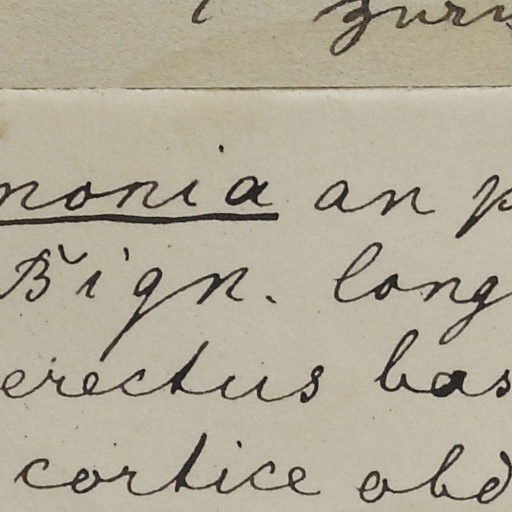 monia an p
Bign. long
erectus bas
cortice obd